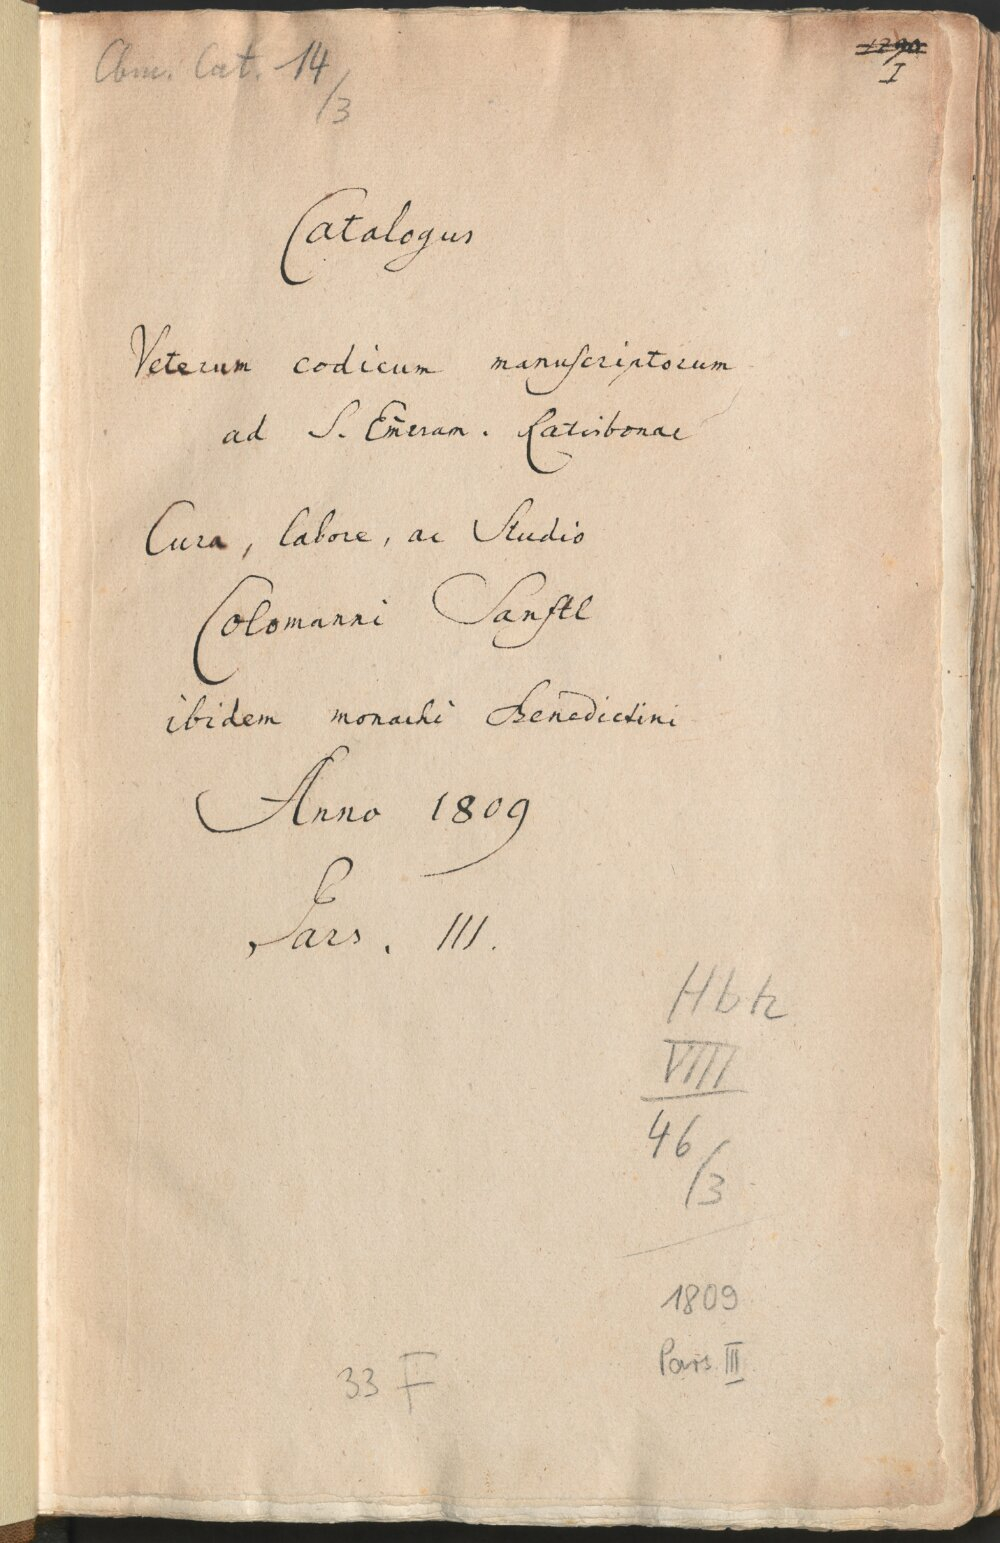 Cbm. Cat. 14/3
I
Catalogus
Veterum codicum manuscriptorum
ad S. Em̃eram. Ratisbonae
Cura, labore, ac Studio
Colomanni Sanftl
ibidem monachi Benedictini
Anno 1809
Pars. III.
Hbh
VIII
46/3
1809
Pars III
33 F